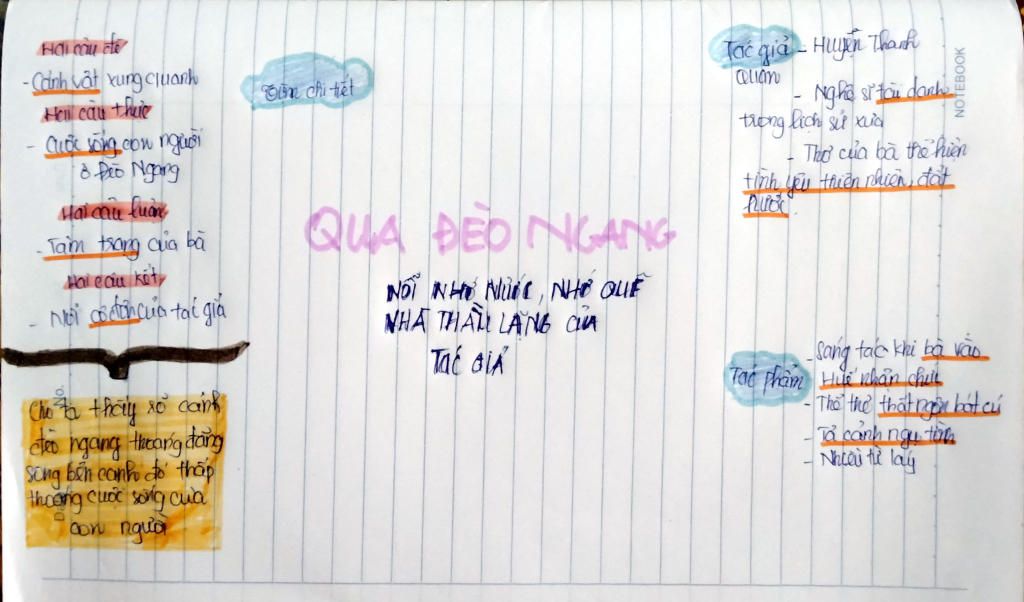 Hai câu đề
- Cảnh vật xung quanh
Hai câu thực
- Cuộc sống con người
ở Đèo Ngang
Hai câu luận
- Tâm trạng của bà
Hai câu kết
- Nỗi cô đơn của tác giả
Cho ta thấy số cảnh
đèo ngang thoáng đãng
song bên cạnh đó thấp
thoáng cuộc sống của
con người
chi tiết
QUA ĐÈO NGANG
NỖI NHỚ NƯỚC, NHỚ QUÊ
NHÀ THẦM LẶNG CỦA
TÁC GIẢ
Tác giả - Huyện Thanh
Quan
- Nghệ sĩ tài danh
trong lịch sử xưa
- Thơ của bà thể hiện
tình yêu thiên nhiên, đất
nước
Tác phẩm
- Sáng tác khi bà vào
Huế nhận chức
- Thể thơ thất ngôn bát cú
- Tả cảnh ngụ tình
- Nhiều từ láy
NOTEBOOK